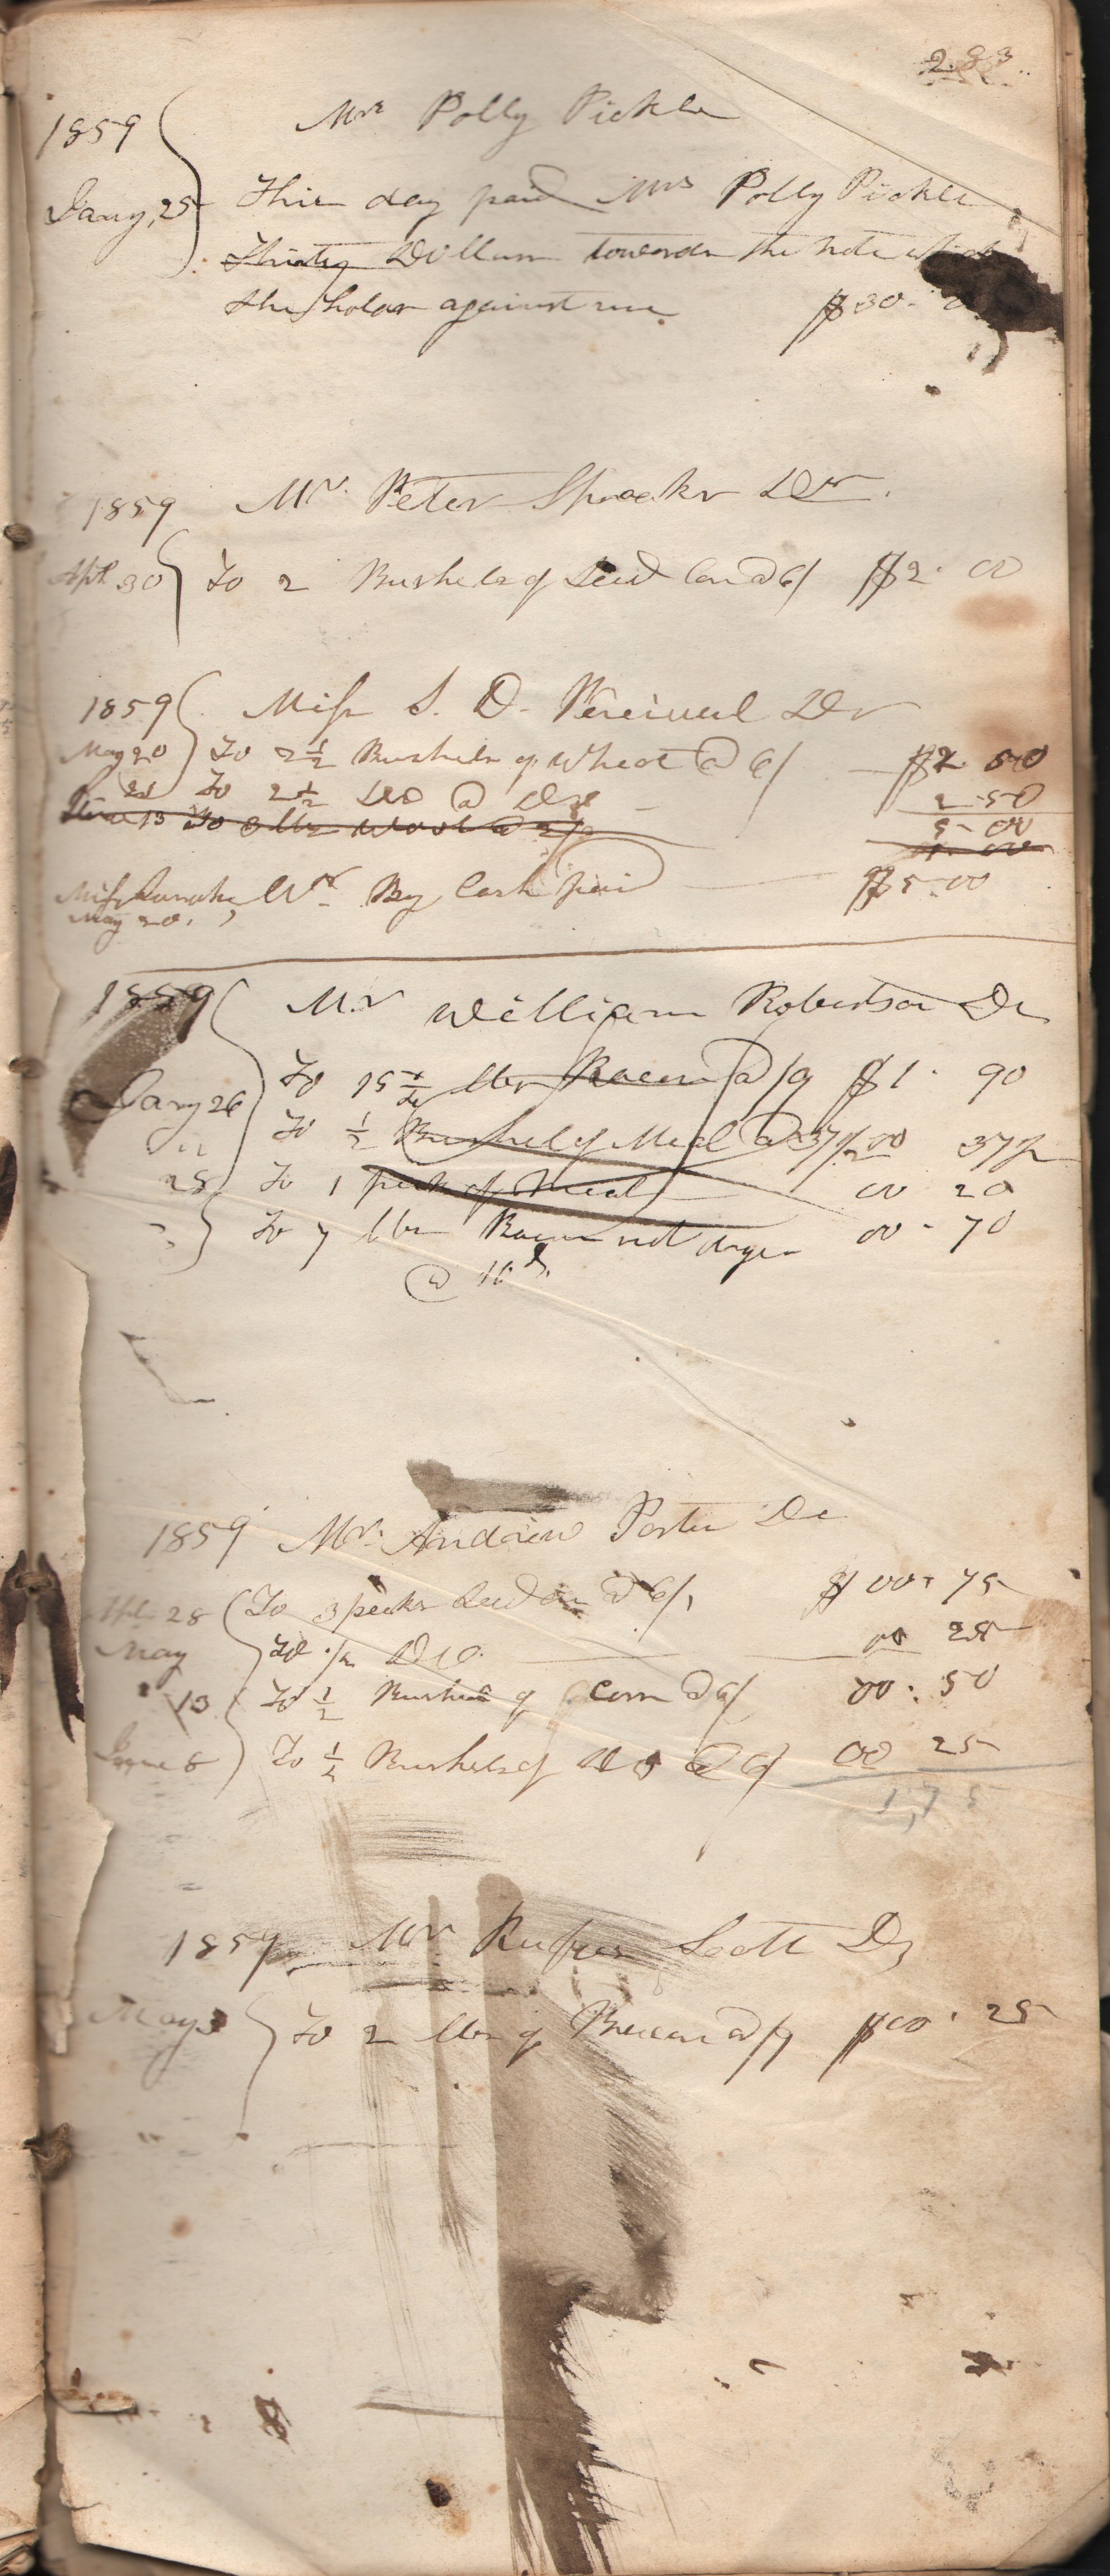 283
1859 Mrs Polly Pickle
Jany, 25 This day paid Mrs Polly Pickle
Thirty Dollars towards the note which
she holds against me $30.
1859 Mr. Peter Dr.
Apl 30 To 2 Bushels of Seed Corn @ 6/ $2. 00
1859 Miss S. D. Percivual Dr
May 20 To 2 1/2 Bushels of Wheat @ 6/ $2 50
21 To 2 1/2 Do @ Do 2.50
June 13 To 8 lbs Wool @ 5 00
Miss Cr. By Cash paid $5.00
May 20.
1859 Mr William Robertson Dr
Jany 26 To 15 lbs Bacon @ /9 $1. 90
To 1/2 Bushel of Meal @ 37 1/2 00 37 1/2
28 To 1 peck of Meal 00 20
To 7 lbs Bacon not 00 - 70
@ 10
1859 Mr. Andrew Porter Dr
Apl. 28 To 3 pecks Seed Corn @ 6/ $00. 75
May To Do. 00 25
13 To 1/2 Bushel of Corn @ 6/ 00. 50
June 8 To 1/2 Bushels of Do @ 6/ 00 25
1,75
1859 Mr Rufus Scott Dr
May 3 To 2 lbs of Bacon @ /9 $00. 25